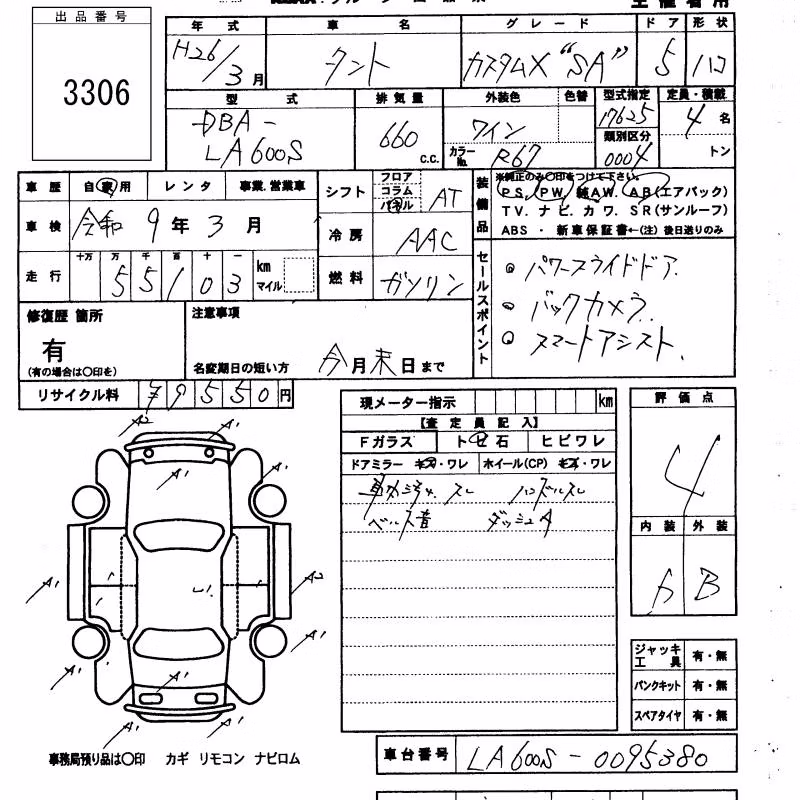 出品番号
3306
年式 車名 グレード ドア 形状
H26/3月 タント カスタムX "SA" 5 ハコ
型式 排気量 外装色 色替 型式指定 定員・積載
DBA- 660 c.c. ワイン 17625 4名
LA600S カラーNo. R67 類別区分 0004 トン
車歴 自家用 レンタ 事業.営業車
シフト フロア コラム パネル AT
装備品 ※純正のみ○印をつけて下さい。
PS. PW. 純AW. AB(エアバック)
TV. ナビ. カワ. SR(サンルーフ)
ABS ・ 新車保証書←(注)後日送りのみ
車検 令和 9年 3月
冷房 AAC
走行 十万 万 千 百 十
55103 km マイル
燃料 ガソリン
セールスポイント
パワースライドドア.
バックカメラ.
スマートアシスト.
修復歴 箇所
有
(有の場合は○印を)
注意事項
名変期日の短い方 今月末日まで
リサイクル料 ¥9550円
現メーター指示 km
【査定員記入】
Fガラス トビ石 ヒビワレ
ドアミラー キズ・ワレ ホイール(CP) キズ・ワレ
スレ ハンドルスレ
ベルト音 ダッシュA
評価点
4
内装 外装
B
A2 A1
A1 A1
A1 A2
A1 A1
A1 A1
ジャッキ工具 有・無
パンクキット 有・無
スペアタイヤ 有・無
事務局預り品は○印 カギ リモコン ナビロム
車台番号 LA600S-0095380